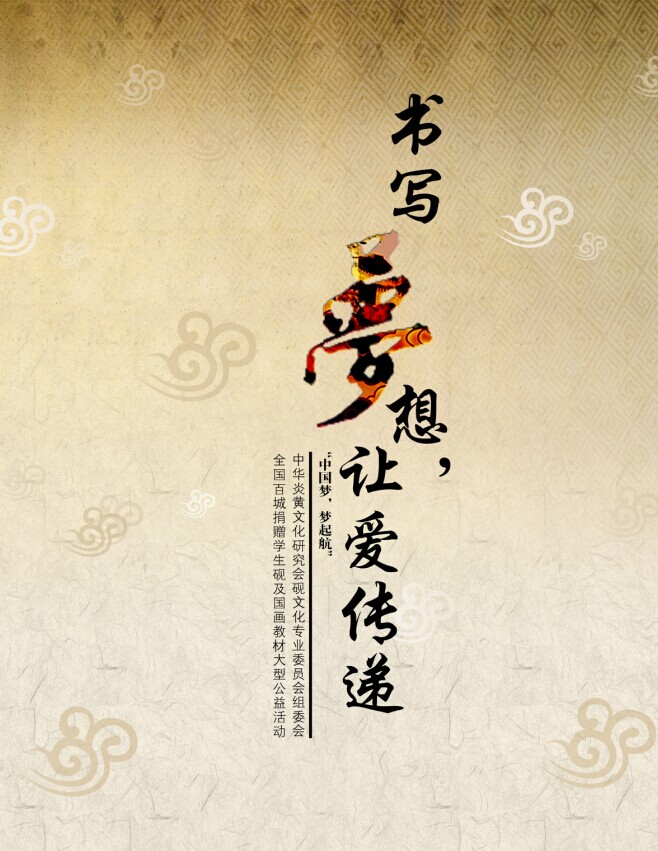 书写夢想，
让爱传递
“中国梦，梦起航”
中华炎黄文化研究会砚文化专业委员会组委会
全国百城捐赠学生砚及国画教材大型公益活动